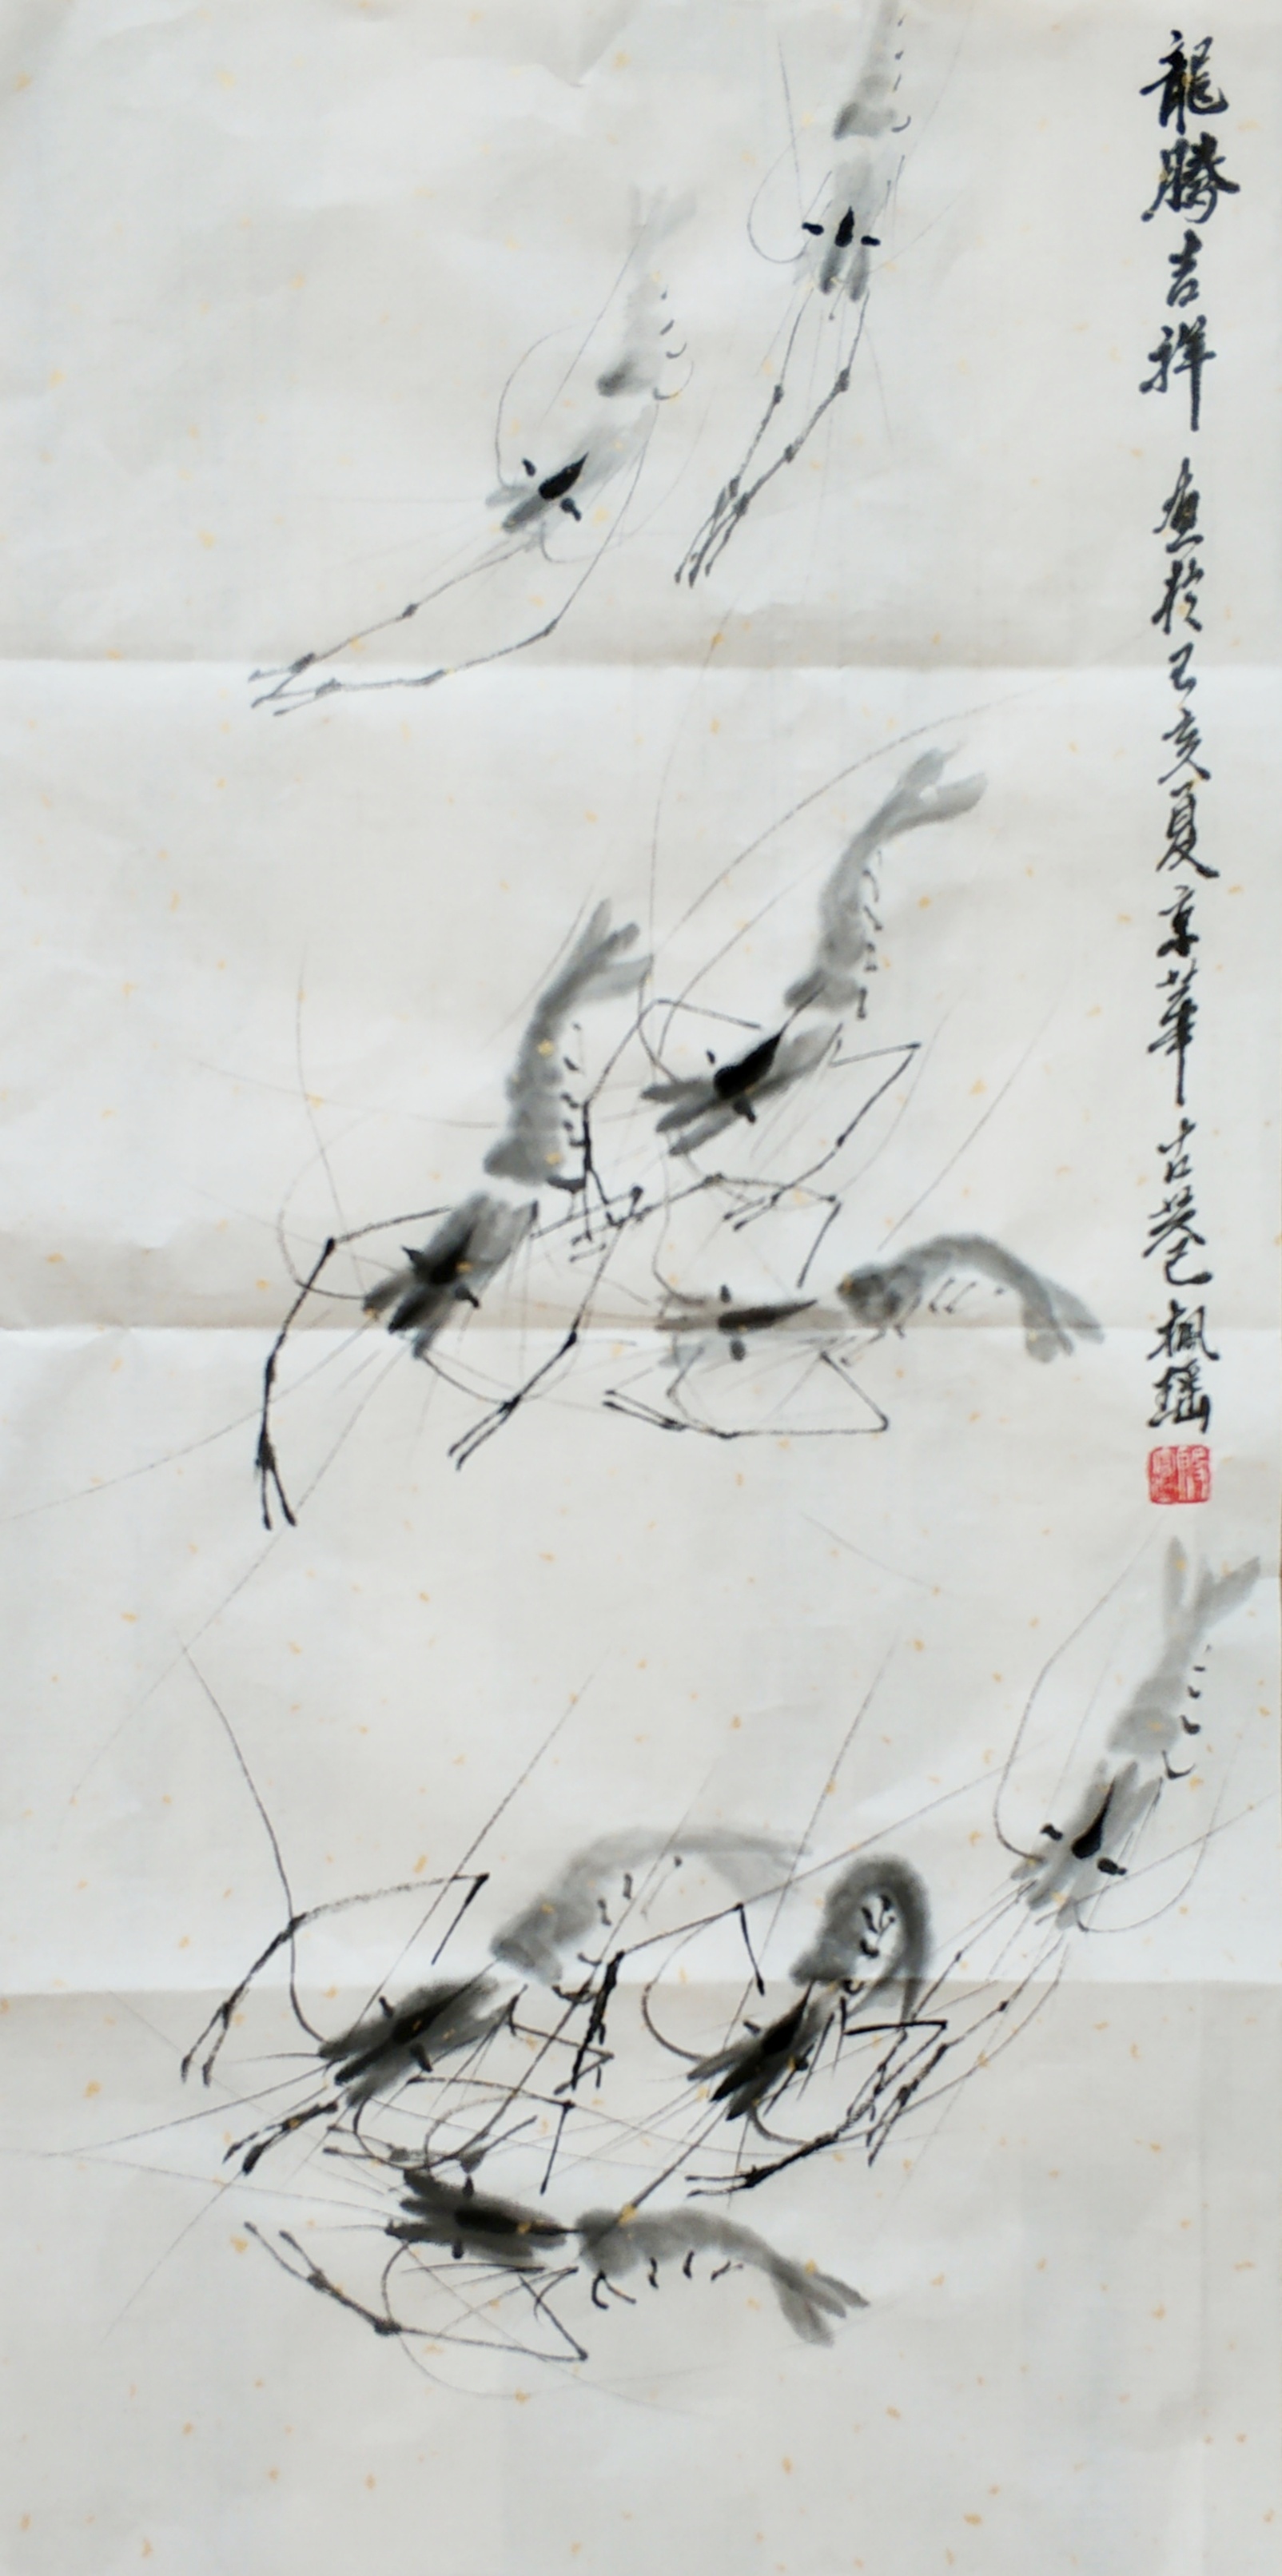 龍騰吉祥 畫於己亥夏京華古巷楓瑤